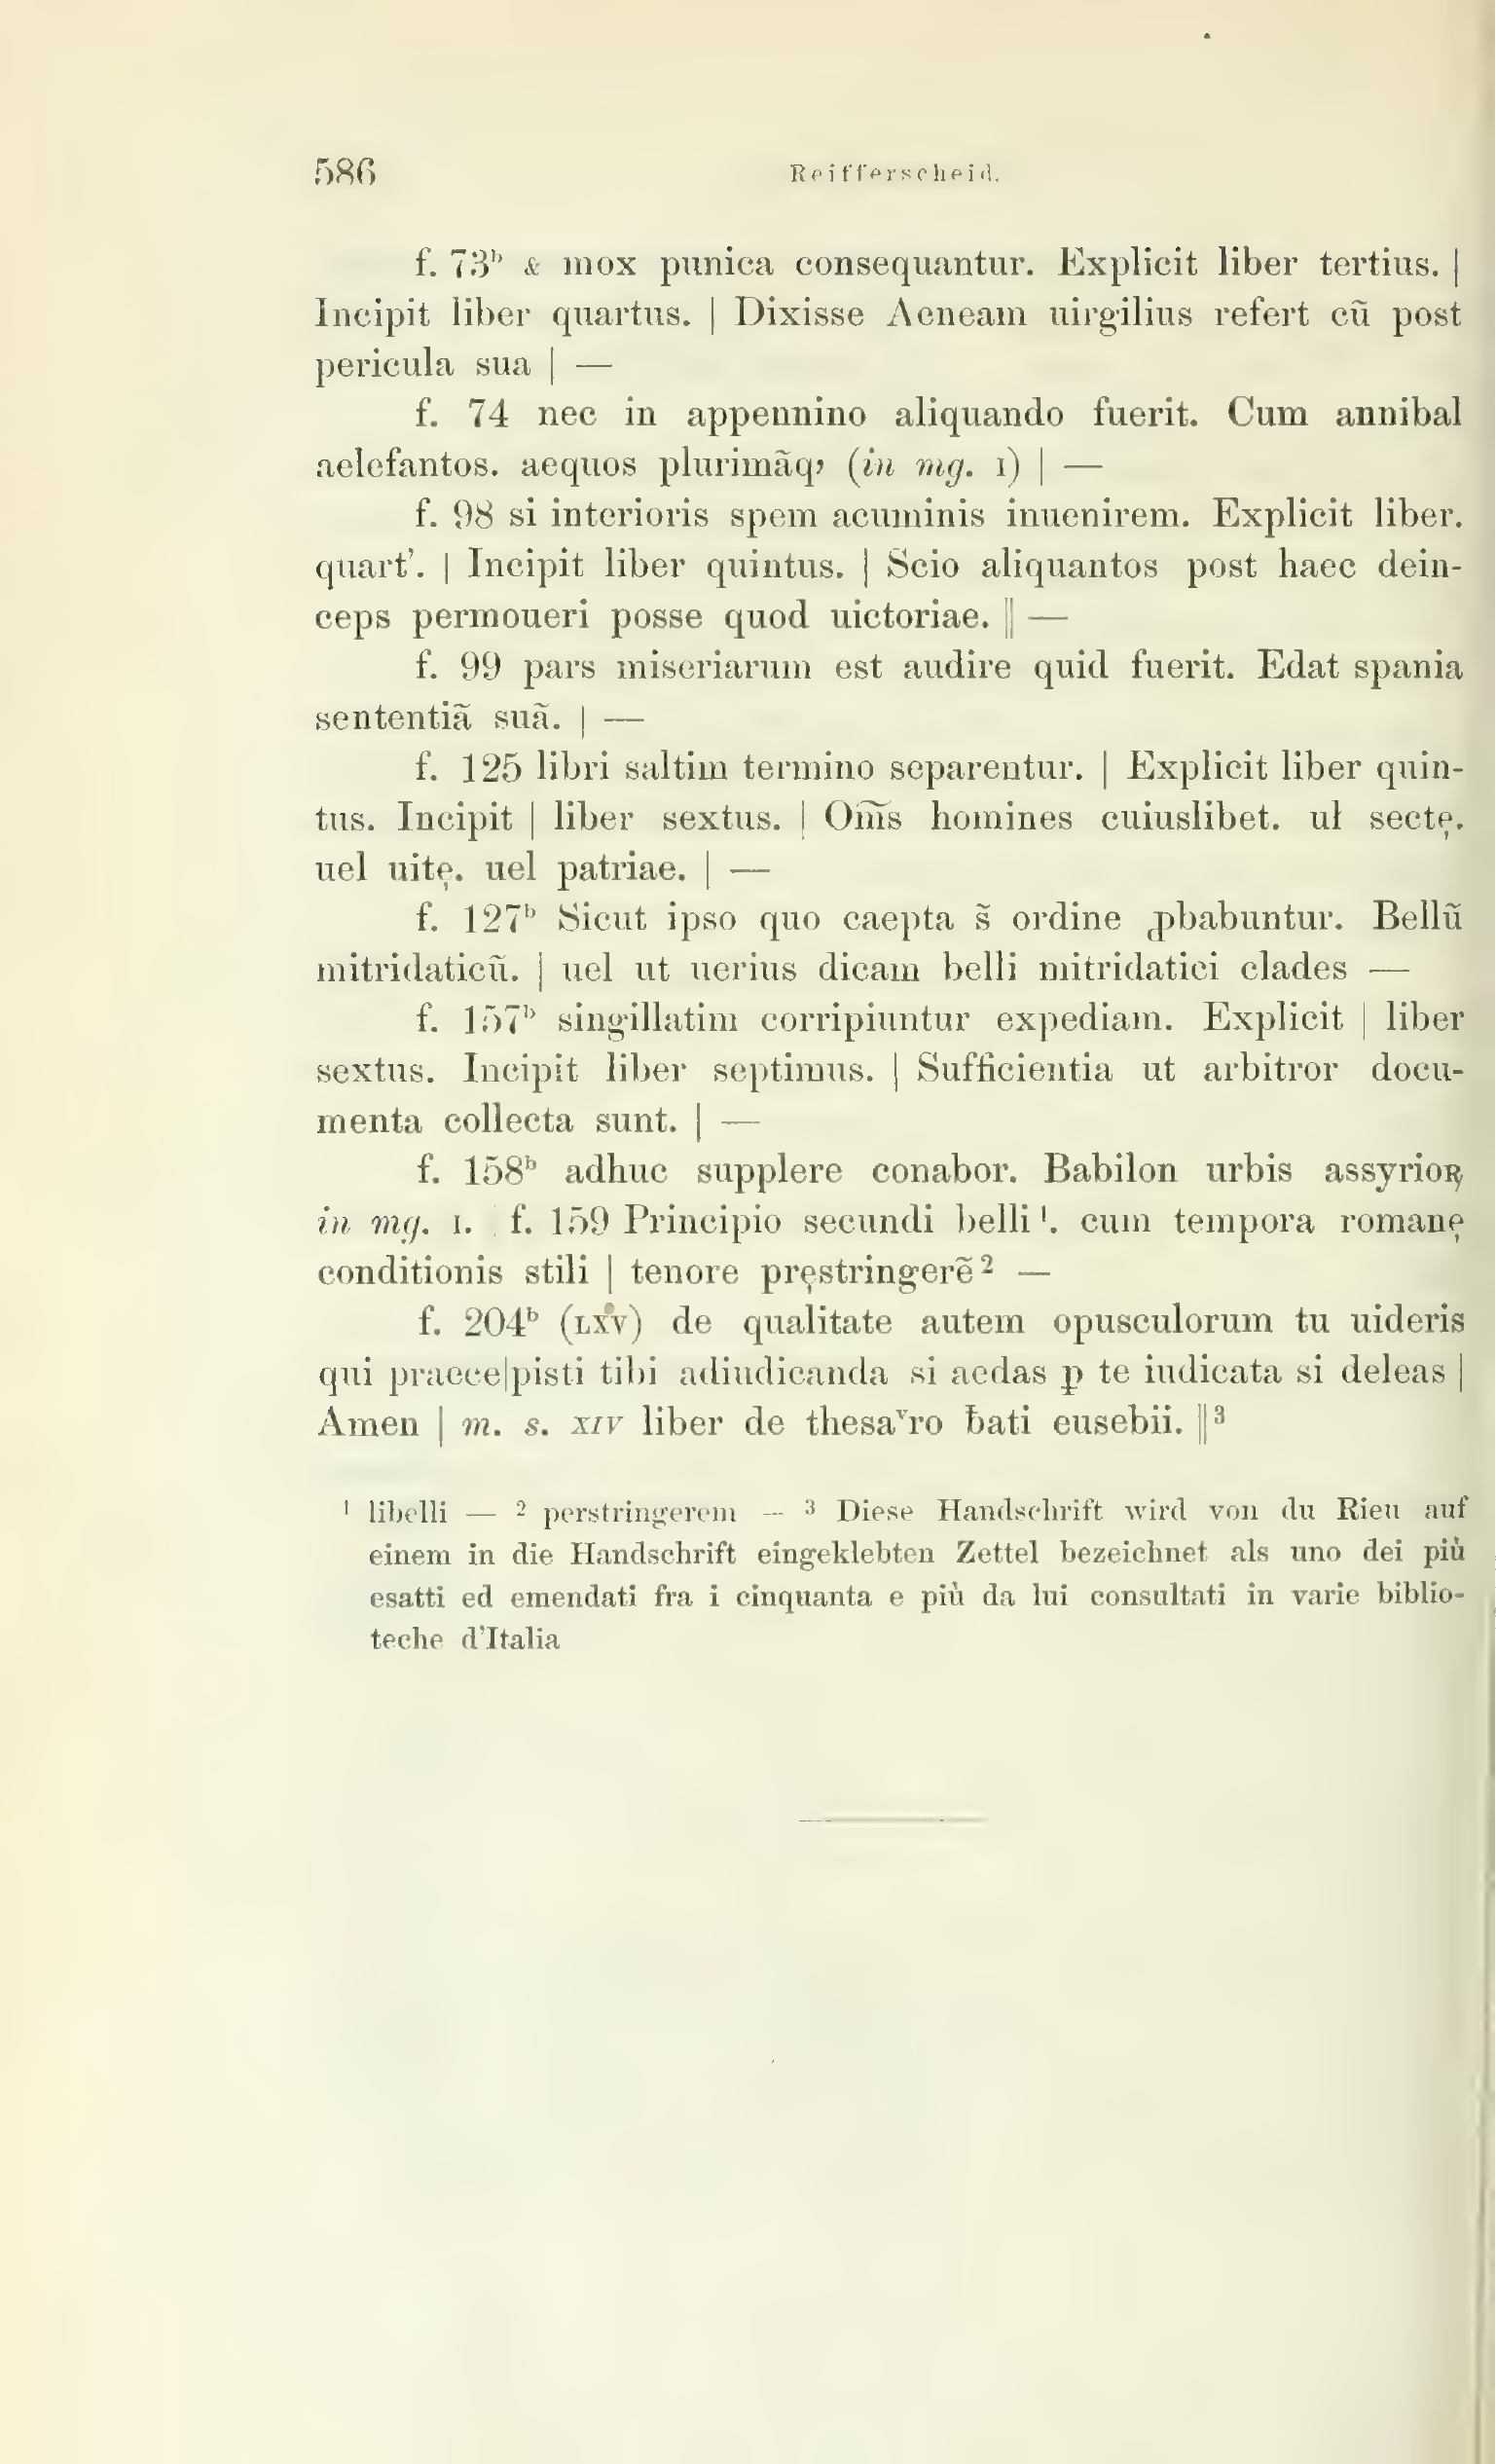 586 Reifferscheid.
f. 73ᵇ & mox punica consequantur. Explicit liber tertius. |
Incipit liber quartus. | Dixisse Aeneam uirgilius refert cū post
pericula sua | —
f. 74 nec in appennino aliquando fuerit. Cum annibal
aelefantos. aequos plurimāq, (in mg. I) | —
f. 98 si interioris spem acuminis inuenirem. Explicit liber.
quart'. | Incipit liber quintus. | Scio aliquantos post haec dein-
ceps permoueri posse quod uictoriae. ‖ —
f. 99 pars miseriarum est audire quid fuerit. Edat spania
sententiā suā. | —
f. 125 libri saltim termino separentur. | Explicit liber quin-
tus. Incipit | liber sextus. | Om̄s homines cuiuslibet. uł sectę.
uel uitę. uel patriae. | —
f. 127ᵇ Sicut ipso quo caepta s̄ ordine ꝓbabuntur. Bellū
mitridaticū. | uel ut uerius dicam belli mitridatici clades —
f. 157ᵇ singillatim corripiuntur expediam. Explicit | liber
sextus. Incipit liber septimus. | Sufficientia ut arbitror docu-
menta collecta sunt. | —
f. 158ᵇ adhuc supplere conabor. Babilon urbis assyrioꝝ
in mg. I. f. 159 Principio secundi belli¹. cum tempora romanę
conditionis stili | tenore pręstringerē² —
f. 204ᵇ (LXV) de qualitate autem opusculorum tu uideris
qui praece|pisti tibi adiudicanda si aedas ꝑ te iudicata si deleas |
Amen | m. s. XIV liber de thesaᵛro ƀati eusebii. ‖³
¹ libelli — ² perstringerem — ³ Diese Handschrift wird von du Rieu auf
einem in die Handschrift eingeklebten Zettel bezeichnet als uno dei più
esatti ed emendati fra i cinquanta e più da lui consultati in varie biblio-
teche d'Italia